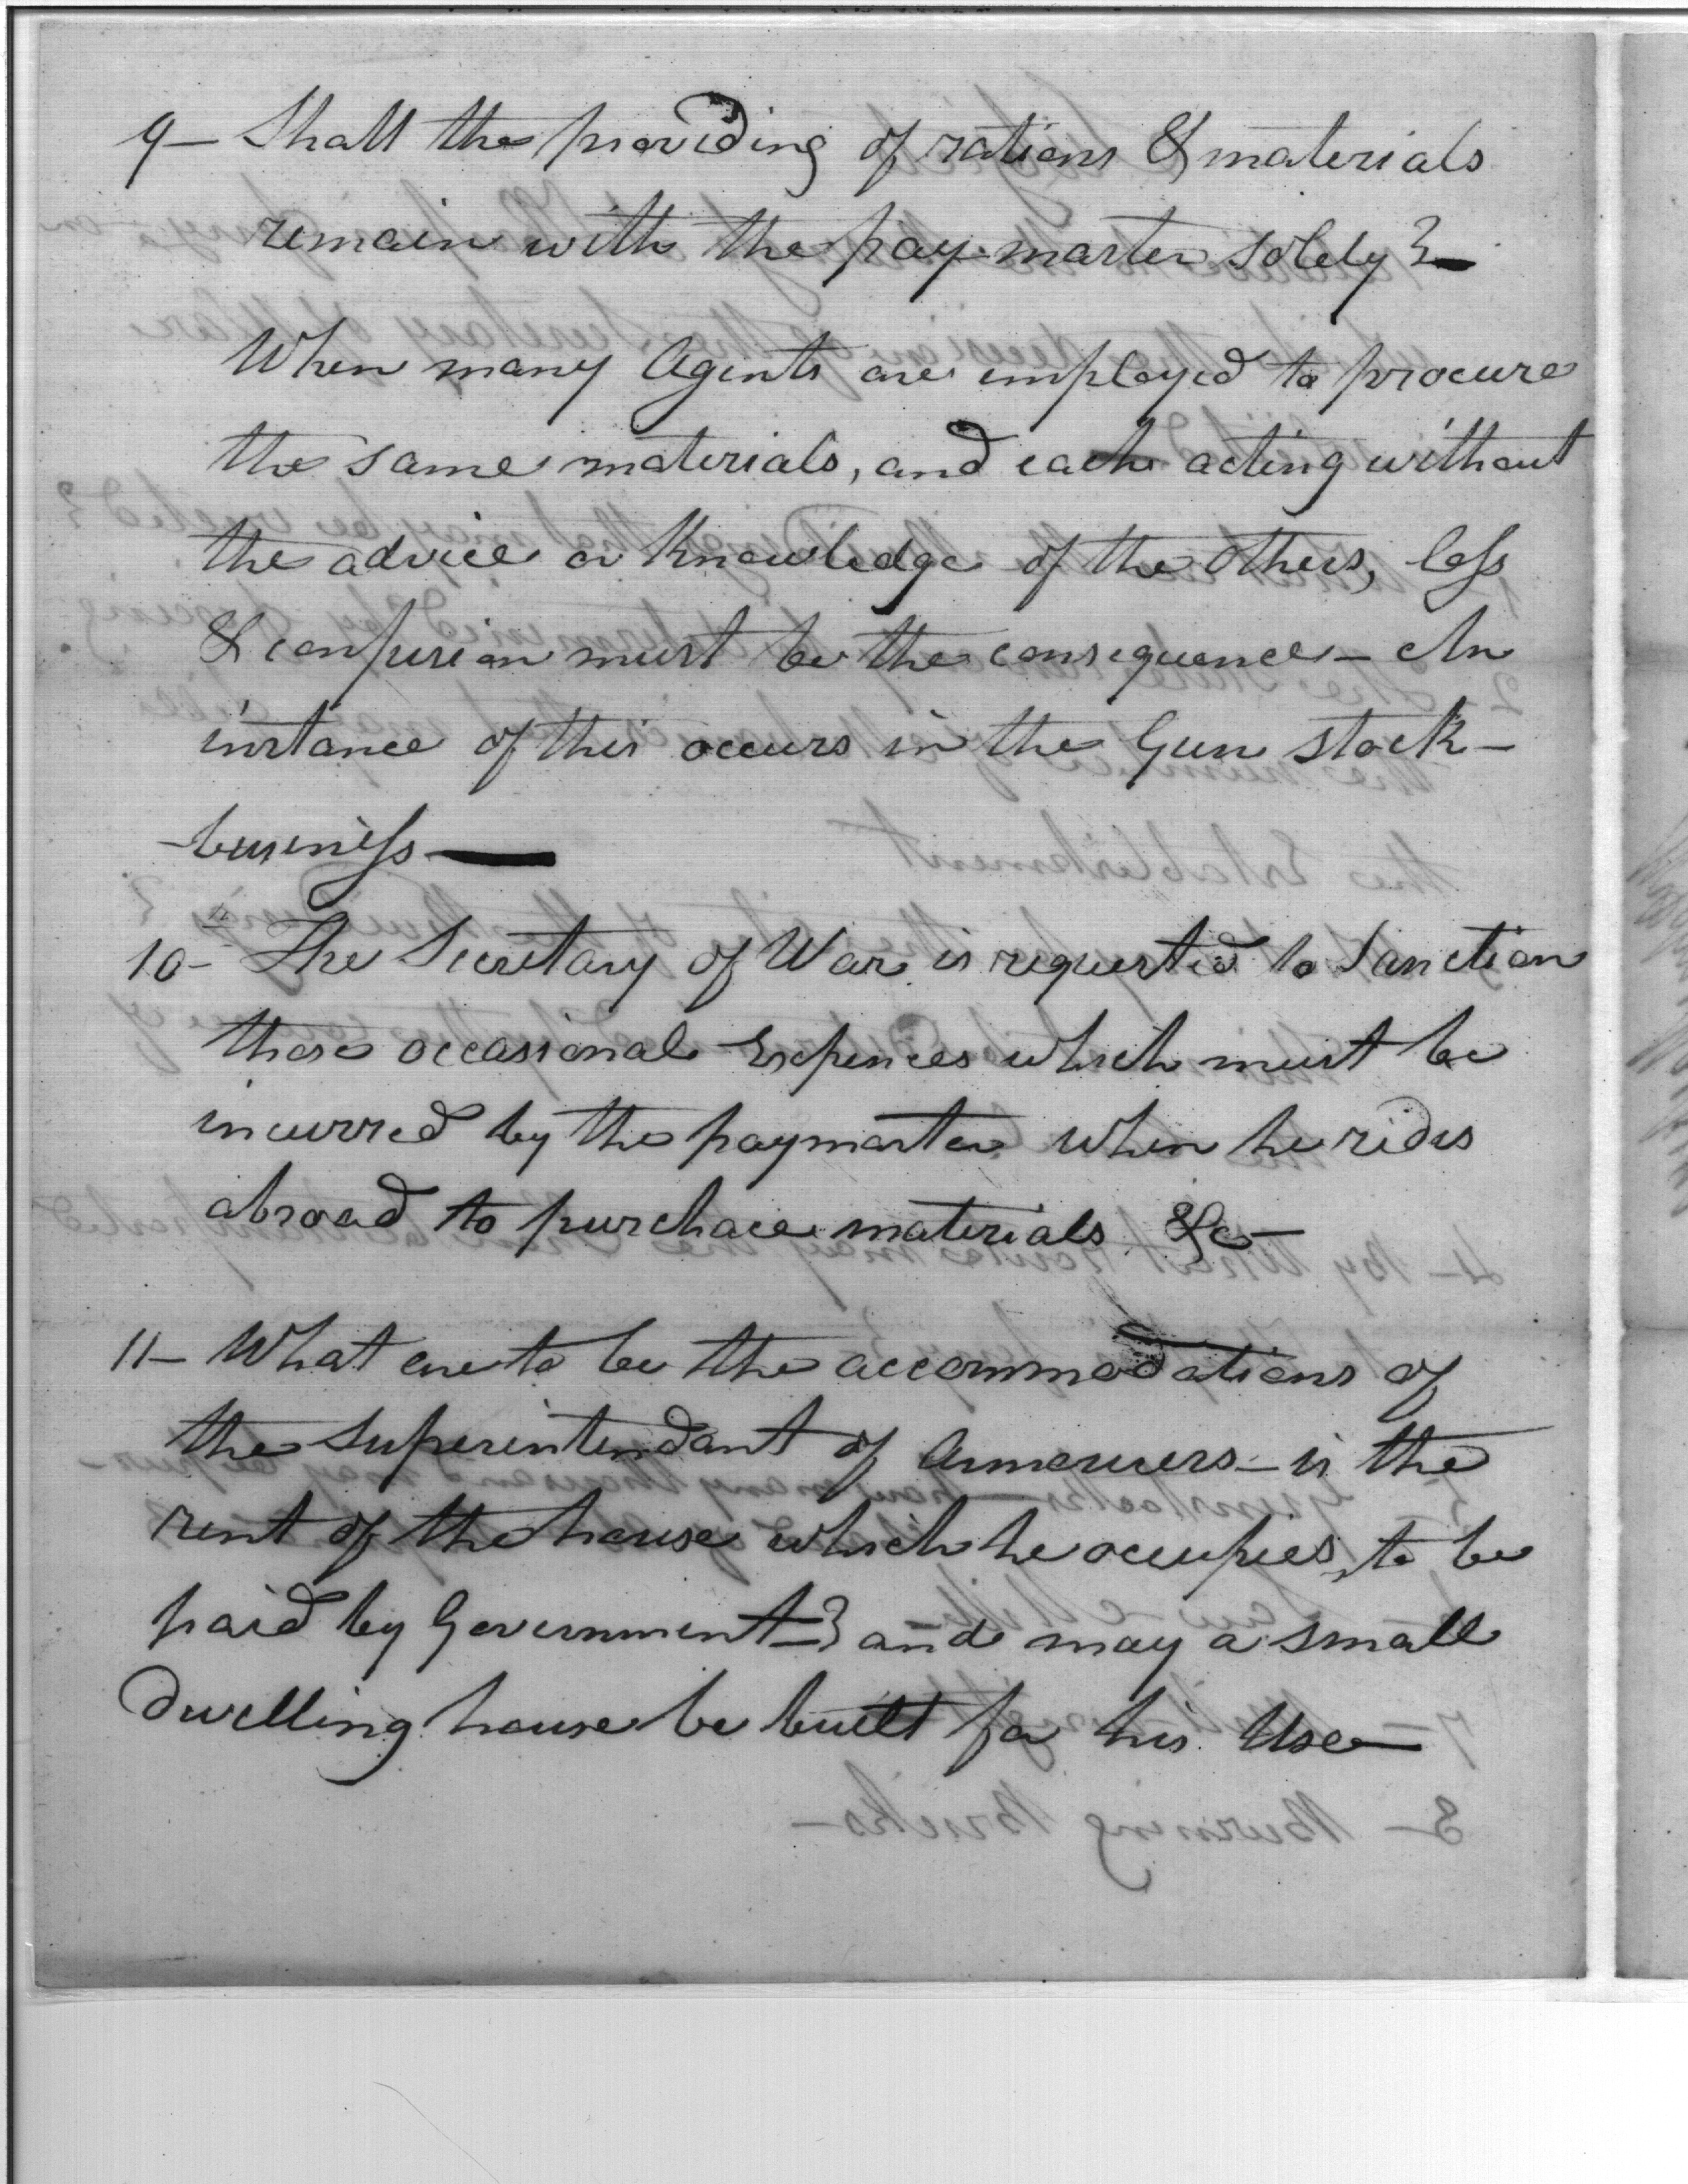 9— Shall the providing of rations & materials
remain with the pay-master solely?—
When many Agents are employed to procure
the same materials, and each acting without
the advice or Knowledge of the others, loss
& confusion must be the consequence— An
instance of this occurs in the Gun stock—
-business——
10— The Secretary of War is requested to Sanction
those occasional Expences which must be
incurred by the paymaster when he rides
abroad to purchace materials &c—
11— What are to be the accommodations of
the Superintendant of Armourers— is the
rent of the house which he occupies, to be
paid by Government—? and may a small
dwelling house be built for his Use—